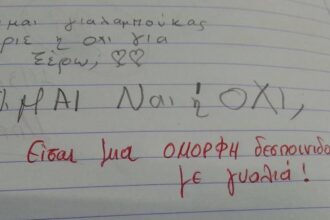 μαι γιαλαμπούκας
ριε ή οχι για
ξέρω; ♡♡
ΜΑΙ Ναι ή ΟΧΙ,
Είσαι μια ΟΜΟΡΦΗ δεσποινίδα
με γυαλιά!